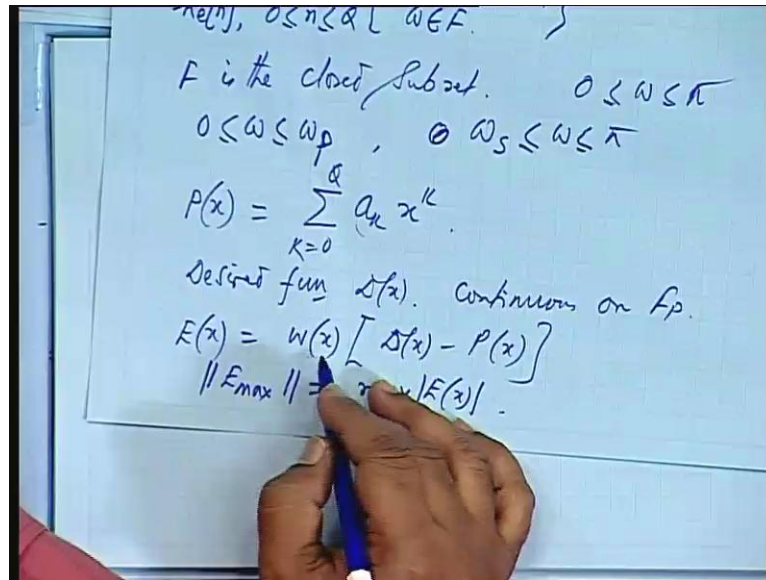 he[n], 0≤n≤Q { ω∈F. }
F is the closed subset. 0 ≤ ω ≤ π
0 ≤ ω ≤ ωp , ωs ≤ ω ≤ π
P(x) = Σ_{K=0}^{Q} a_K x^K.
Desired fun D(x). Continuous on Fp.
E(x) = W(x) [ D(x) - P(x) ]
||Emax|| = |E(x)|.